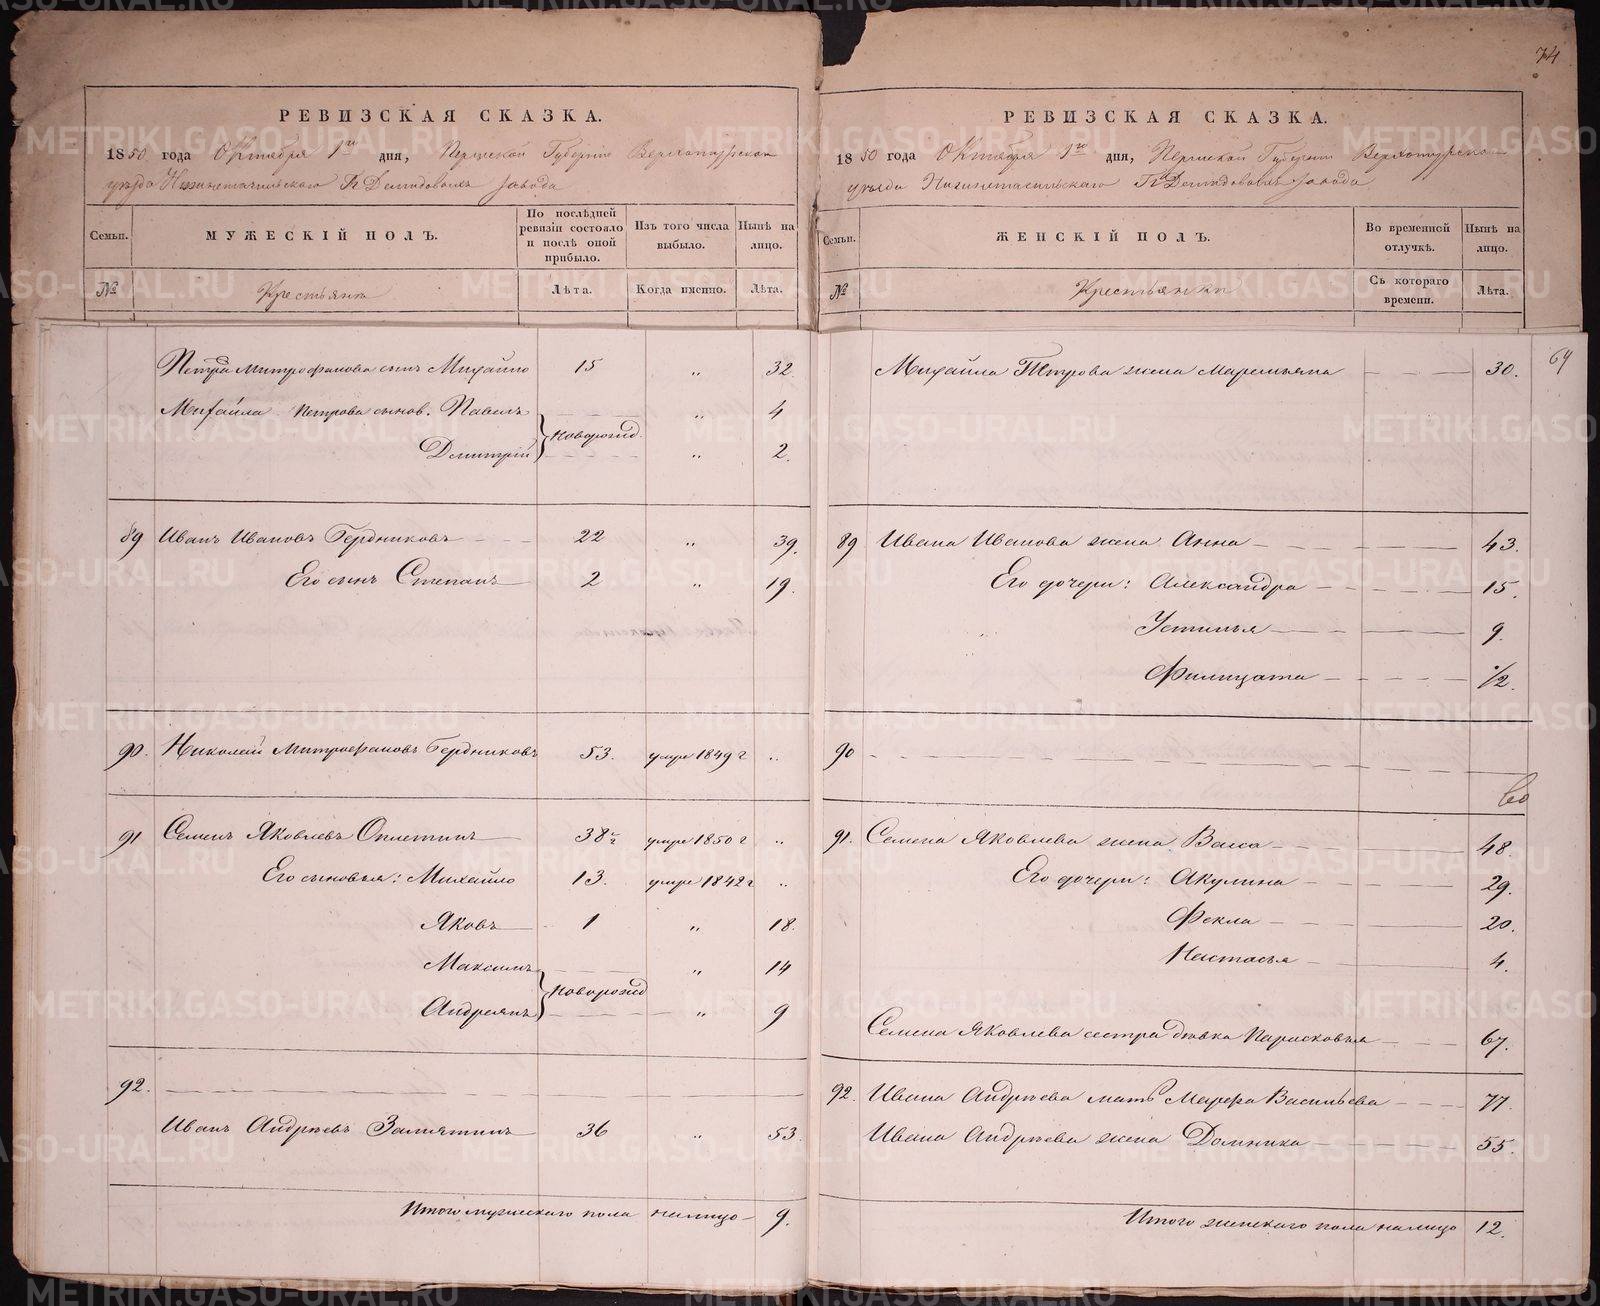 74
РЕВИЗСКАЯ СКАЗКА.
1850 года Октября 1го дня, Пермской Губернiи Верхотурскаго
уѣзда Нижнетагильскаго Гг Демидовыхъ завода
Семьи. МУЖЕСКІЙ ПОЛЪ. По послѣдней ревизіи состояло и послѣ оной прибыло. Изъ того числа выбыло. Нынѣ на лицо.
№ Крестьяне Лѣта. Когда именно. Лѣта.
Петра Митрофанова сынъ Михайло 15 " 32.
Михайла Петрова сынов. Павелъ новорожд. " 4
Дмитрій " 2.
89 Иванъ Ивановъ Бердниковъ 22 " 39.
Его сынъ Степанъ 2 " 19.
90. Николай Митрофановъ Бердниковъ 53. умре 1849 г "
91 Семенъ Яковлевъ Оплетинъ 38½ умре 1850 г "
Его сыновья: Михайло 13. умре 1842 г "
Яковъ 1 " 18.
Максимъ новорожд " 14
Андреянъ " 9
92.
Иванъ Андрѣевъ Замятинъ 36 " 53.
Итого мужескаго пола налицо 9.
РЕВИЗСКАЯ СКАЗКА.
1850 года Октября 1го дня, Пермской Губернiи Верхотурскаго
уѣзда Нижнетагильскаго Гг Демидовыхъ завода
Семьи. ЖЕНСКІЙ ПОЛЪ. Во временной отлучкѣ. Нынѣ на лицо.
№ Крестьянки Съ котораго времени. Лѣта.
64
Михайла Петрова жена Маремьяна 30.
89 Ивана Иванова жена Анна 43.
Его дочери: Александра 15.
Устинья 9.
Филицата ½.
90
91. Семена Яковлева жена Васса 48.
Его дочери: Акулина 29.
Фекла 20.
Настасья 4.
Семена Яковлева сестра дѣвка Парасковья 67.
92. Ивана Андрѣева мать Марфа Васильева 77.
Ивана Андрѣева жена Домника 55.
Итого женскаго пола налицо 12.
METRIKI.GASO-URAL.RU